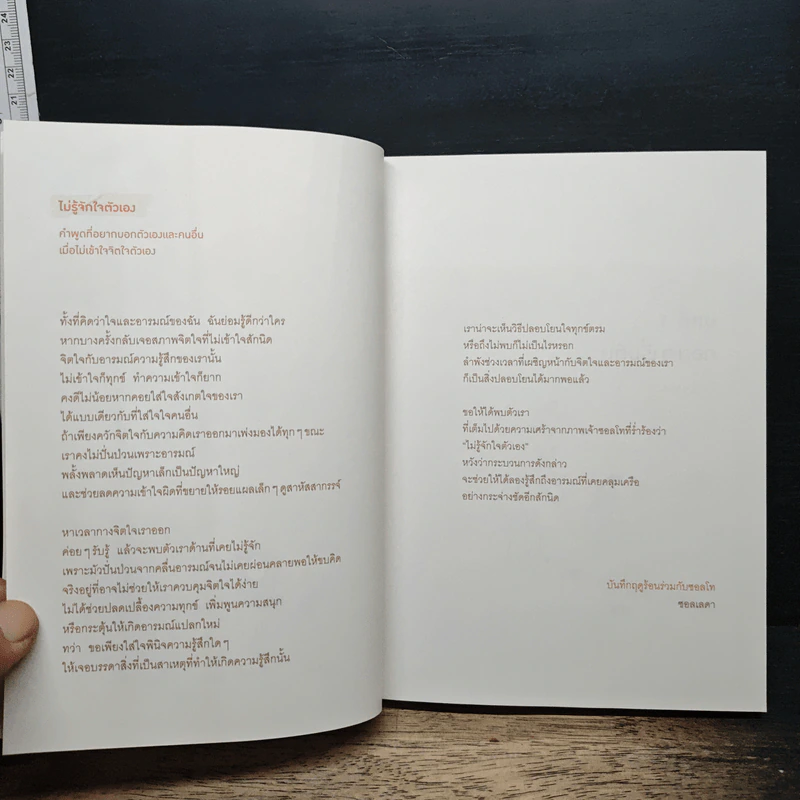 24
23
22
21
ไม่รู้จักใจตัวเอง
คำพูดที่อยากบอกตัวเองและคนอื่น
เมื่อไม่เข้าใจจิตใจตัวเอง
ทั้งที่คิดว่าใจและอารมณ์ของฉัน ฉันย่อมรู้ดีกว่าใคร
หากบางครั้งกลับเจอสภาพจิตใจที่ไม่เข้าใจสักนิด
จิตใจกับอารมณ์ความรู้สึกของเรานั้น
ไม่เข้าใจก็ทุกข์ ทำความเข้าใจก็ยาก
คงดีไม่น้อยหากคอยใส่ใจสังเกตใจของเรา
ได้แบบเดียวกับที่ใส่ใจใจคนอื่น
ถ้าเพียงควักจิตใจกับความคิดเราออกมาเพ่งมองได้ทุก ๆ ขณะ
เราคงไม่ปั่นป่วนเพราะอารมณ์
พลั้งพลาดเห็นปัญหาเล็กเป็นปัญหาใหญ่
และช่วยลดความเข้าใจผิดที่ขยายให้รอยแผลเล็ก ๆ ดูสาหัสสากรรจ์
หาเวลากางจิตใจเราออก
ค่อย ๆ รับรู้ แล้วจะพบตัวเราด้านที่เคยไม่รู้จัก
เพราะมัวปั่นป่วนจากคลื่นอารมณ์จนไม่เคยผ่อนคลายพอให้ขบคิด
จริงอยู่ที่อาจไม่ช่วยให้เราควบคุมจิตใจได้ง่าย
ไม่ได้ช่วยปลดเปลื้องความทุกข์ เพิ่มพูนความสนุก
หรือกระตุ้นให้เกิดอารมณ์แปลกใหม่
ทว่า ขอเพียงใส่ใจพินิจความรู้สึกใด ๆ
ให้เจอบรรดาสิ่งที่เป็นสาเหตุที่ทำให้เกิดความรู้สึกนั้น
เราน่าจะเห็นวิธีปลอบโยนใจทุกข์ตรม
หรือถึงไม่พบก็ไม่เป็นไรหรอก
ลำพังช่วงเวลาที่เผชิญหน้ากับจิตใจและอารมณ์ของเรา
ก็เป็นสิ่งปลอบโยนได้มากพอแล้ว
ขอให้ได้พบตัวเรา
ที่เต็มไปด้วยความเศร้าจากภาพเจ้าซอลโทที่ร่ำร้องว่า
"ไม่รู้จักใจตัวเอง"
หวังว่ากระบวนการดังกล่าว
จะช่วยให้ได้ลองรู้สึกถึงอารมณ์ที่เคยคลุมเครือ
อย่างกระจ่างชัดอีกสักนิด
บันทึกฤดูร้อนร่วมกับซอลโท
ซอลเลดา